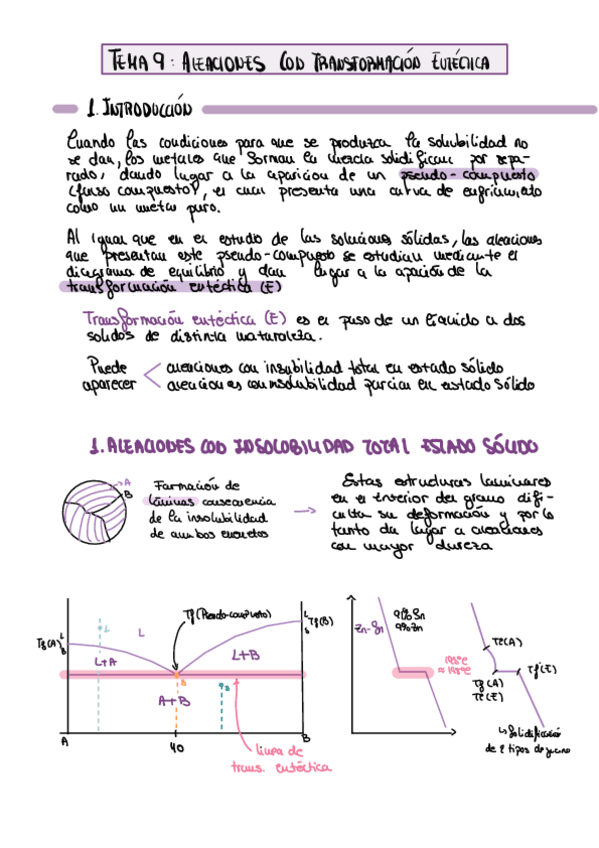 TEMA 9: ALEACIONES CON TRANSFORMACIÓN EUTÉCTICA
1. INTRODUCCIÓN
Cuando las condiciones para que se produzca la solubilidad no
se dan, los metales que forman la mezcla solidifican por sepa-
rado, dando lugar a la aparición de un pseudo-compuesto
(falso compuesto), el cual presenta una curva de enfriamiento
como un metal puro.
Al igual que en el estudio de las soluciones sólidas, las aleaciones
que presentan este pseudo-compuesto se estudian mediante el
diagrama de equilibrio y dan lugar a la aparición de la
transformación eutéctica (E)
Transformación eutéctica (E) es el paso de un líquido a dos
solidos de distinta naturaleza.
Puede
aparecer
aleaciones con insolubilidad total en estado sólido
aleaciones con insolubilidad parcial en estado sólido
1. ALEACIONES CON INSOLOBILIDAD TOTAL ESTADO SÓLIDO
A
B
Formación de
láminas consecuencia
de la insolubilidad
de ambos
Estas estructuras laminares
en el interior del grano difi-
culta su deformación y por lo
tanto da lugar a aleaciones
con mayor dureza
Tf(A) L
S
L
L
Tf(Pseudo-compuesto)
L
S Tf(B)
L+A
L+B
A+B
A
40
B
línea de
trans. eutéctica
Zn-Sn
91% Sn
9% Zn
Tc(A)
Tf(A)
Tc(E)
Tf(E)
↳ Solidificación
de 2 tipos de grano